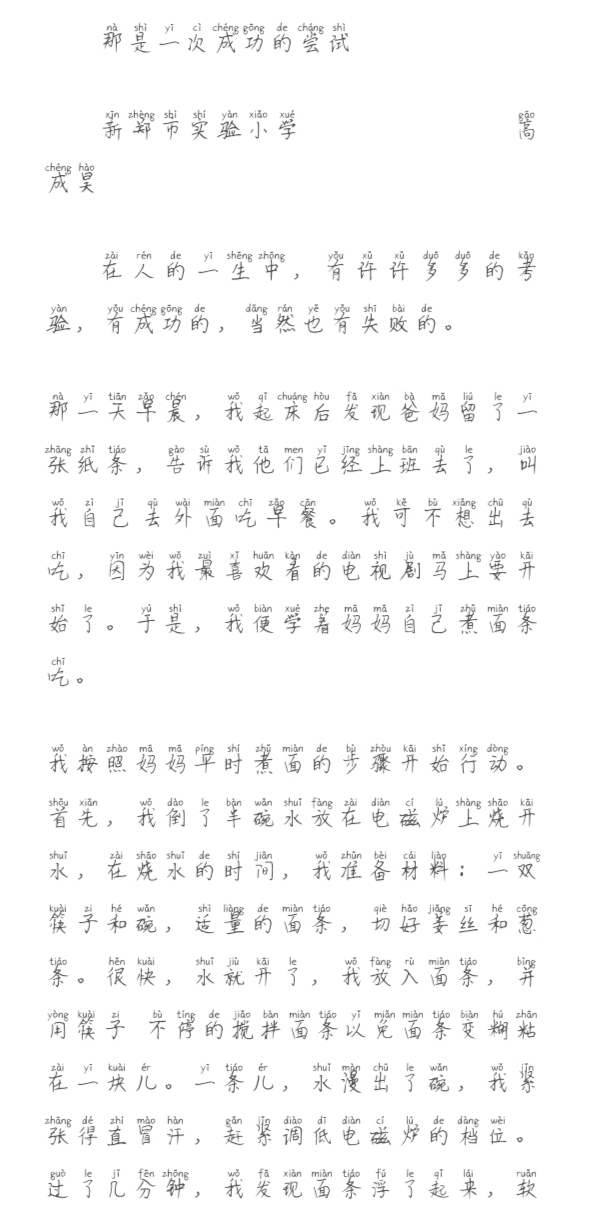 nà shì yī cì chéng gōng de cháng shì
那是一次成功的尝试
xīn zhèng shì shí yàn xiǎo xué gāo
新郑市实验小学 高
chéng hào
成昊
zài rén de yī shēng zhōng yǒu xǔ xǔ duō duō de kǎo
在人的一生中，有许许多多的考
yàn yǒu chéng gōng de dāng rán yě yǒu shī bài de
验，有成功的，当然也有失败的。
nà yī tiān zǎo chén wǒ qǐ chuáng hòu fā xiàn bà mā liú le yī
那一天早晨，我起床后发现爸妈留了一
zhāng zhǐ tiáo gào sù wǒ tā men yǐ jīng shàng bān qù le jiào
张纸条，告诉我他们已经上班去了，叫
wǒ zì jǐ qù wài miàn chī zǎo cān wǒ kě bù xiǎng chū qù
我自己去外面吃早餐。我可不想出去
chī yīn wèi wǒ zuì xǐ huān kàn de diàn shì jù mǎ shàng yào kāi
吃，因为我最喜欢看的电视剧马上要开
shǐ le yú shì wǒ biàn xué zhe mā mā zì jǐ zhǔ miàn tiáo
始了。于是，我便学着妈妈自己煮面条
chī
吃。
wǒ àn zhào mā mā píng shí zhǔ miàn de bù zhòu kāi shǐ xíng dòng
我按照妈妈平时煮面的步骤开始行动。
shǒu xiān wǒ dào le bàn wǎn shuǐ fàng zài diàn cí lú shàng shāo kāi
首先，我倒了半碗水放在电磁炉上烧开
shuǐ zài shāo shuǐ de shí jiān wǒ zhǔn bèi cái liào yī shuāng
水，在烧水的时间，我准备材料：一双
kuài zi hé wǎn shì liàng de miàn tiáo qiē hǎo jiāng sī hé cōng
筷子和碗，适量的面条，切好姜丝和葱
tiáo hěn kuài shuǐ jiù kāi le wǒ fàng rù miàn tiáo bìng
条。很快，水就开了，我放入面条，并
yòng kuài zi bù tíng de jiǎo bàn miàn tiáo yǐ miǎn miàn tiáo biàn hú zhān
用筷子 不停的搅拌面条以免面条变糊粘
zài yī kuài ér yī tiáo ér shuǐ màn chū le wǎn wǒ jǐn
在一块儿。一条儿，水漫出了碗，我紧
zhāng dé zhí mào hàn gǎn jǐn diào dī diàn cí lú de dàng wèi
张得直冒汗，赶紧调低电磁炉的档位。
guò le jǐ fēn zhōng wǒ fā xiàn miàn tiáo fú le qǐ lái ruǎn
过了几分钟，我发现面条浮了起来，软